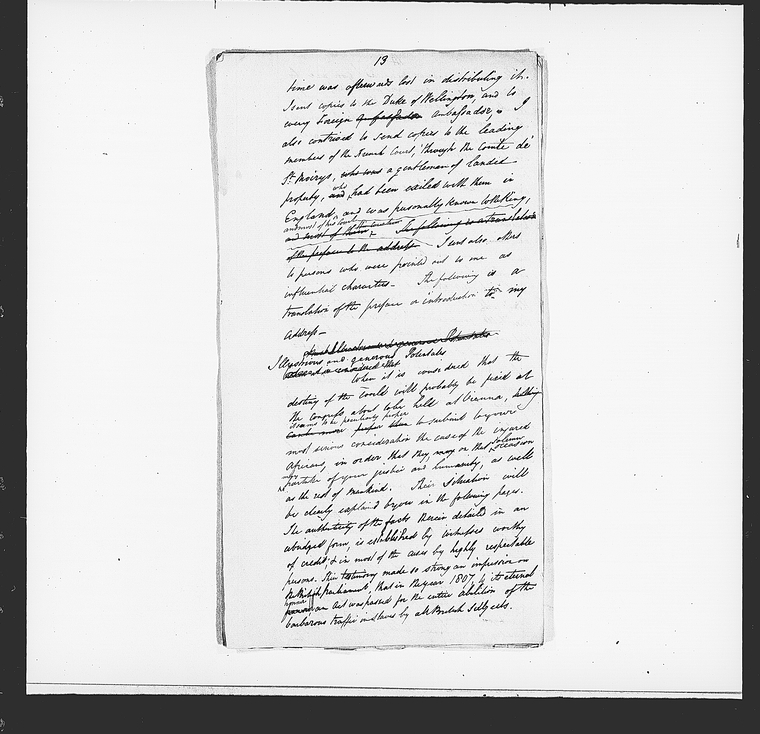 13
time was afterwards lost in distributing it.
I sent copies to the Duke of Wellington, and to
every Foreign Ambassador, I
also contrived to send copies to the leading
members of the French Court, through the Comte de
St. Morys, who was a gentleman of landed
property, and who had been exiled with them in
England, and was personally known to the King,
and most of his Court
and most of them. The following is a translation
of the preface to the address I sent also others
to persons who were pointed out to me as
influential characters - The following is a
translation of the preface or introduction to my
Address -
Illustrious and generous Potentates
Illustrious and generous Potentates
When it is considered that the
destiny of the World will probably be fixed at
the Congress about to be held at Vienna, nothing
it seems to be peculiarly proper
can be more proper than to submit to your
most serious consideration the case of the injured
Africans, in order that they may on that solemn occasion
partake of your justice and humanity, as well
as the rest of Mankind. Their situation will
be clearly explained to you in the following pages.
The authenticity of the facts therein detailed in an
abridged form, is established by witnesses worthy
of credit, & in most of the cases by highly respectable
persons. This testimony made so strong an impression on
the British Parliament, that in the year 1807, to its eternal
honour
honour, an Act was passed for the entire abolition of the
barbarous traffic in slaves by all British subjects.